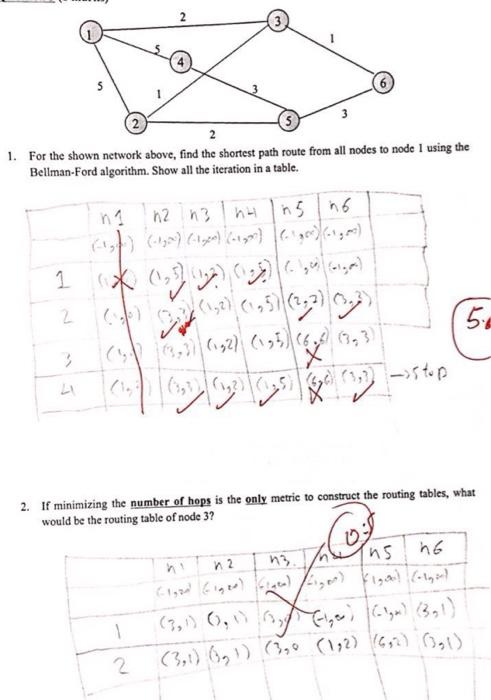 2
1
3
5
1
4
5
1
3
6
2
5
3
2
1. For the shown network above, find the shortest path route from all nodes to node 1 using the
Bellman-Ford algorithm. Show all the iteration in a table.
n1 n2 n3 n4 n5 n6
(-1,∞) (-1,∞) (-1,∞) (-1,∞) (-1,∞)
1 (1,5) (1,2) (1,5) (-1,∞) (-1,∞)
2 (1,2) (1,5) (2,7) (3,3)
3 (3,3) (1,2) (1,5) (6,6) (3,3)
4 (3,3) (1,2) (1,5) (6,6) (3,3) →stop
2. If minimizing the number of hops is the only metric to construct the routing tables, what
would be the routing table of node 3?
n1 n2 n3 n5 n6
(-1,∞) (-1,∞) (-1,∞) (-1,∞) (-1,∞) (-1,∞)
1 (3,1) (3,1) (-1,∞) (-1,∞) (3,1)
2 (3,1) (3,1) (3,0 (1,2) (6,2) (3,1)